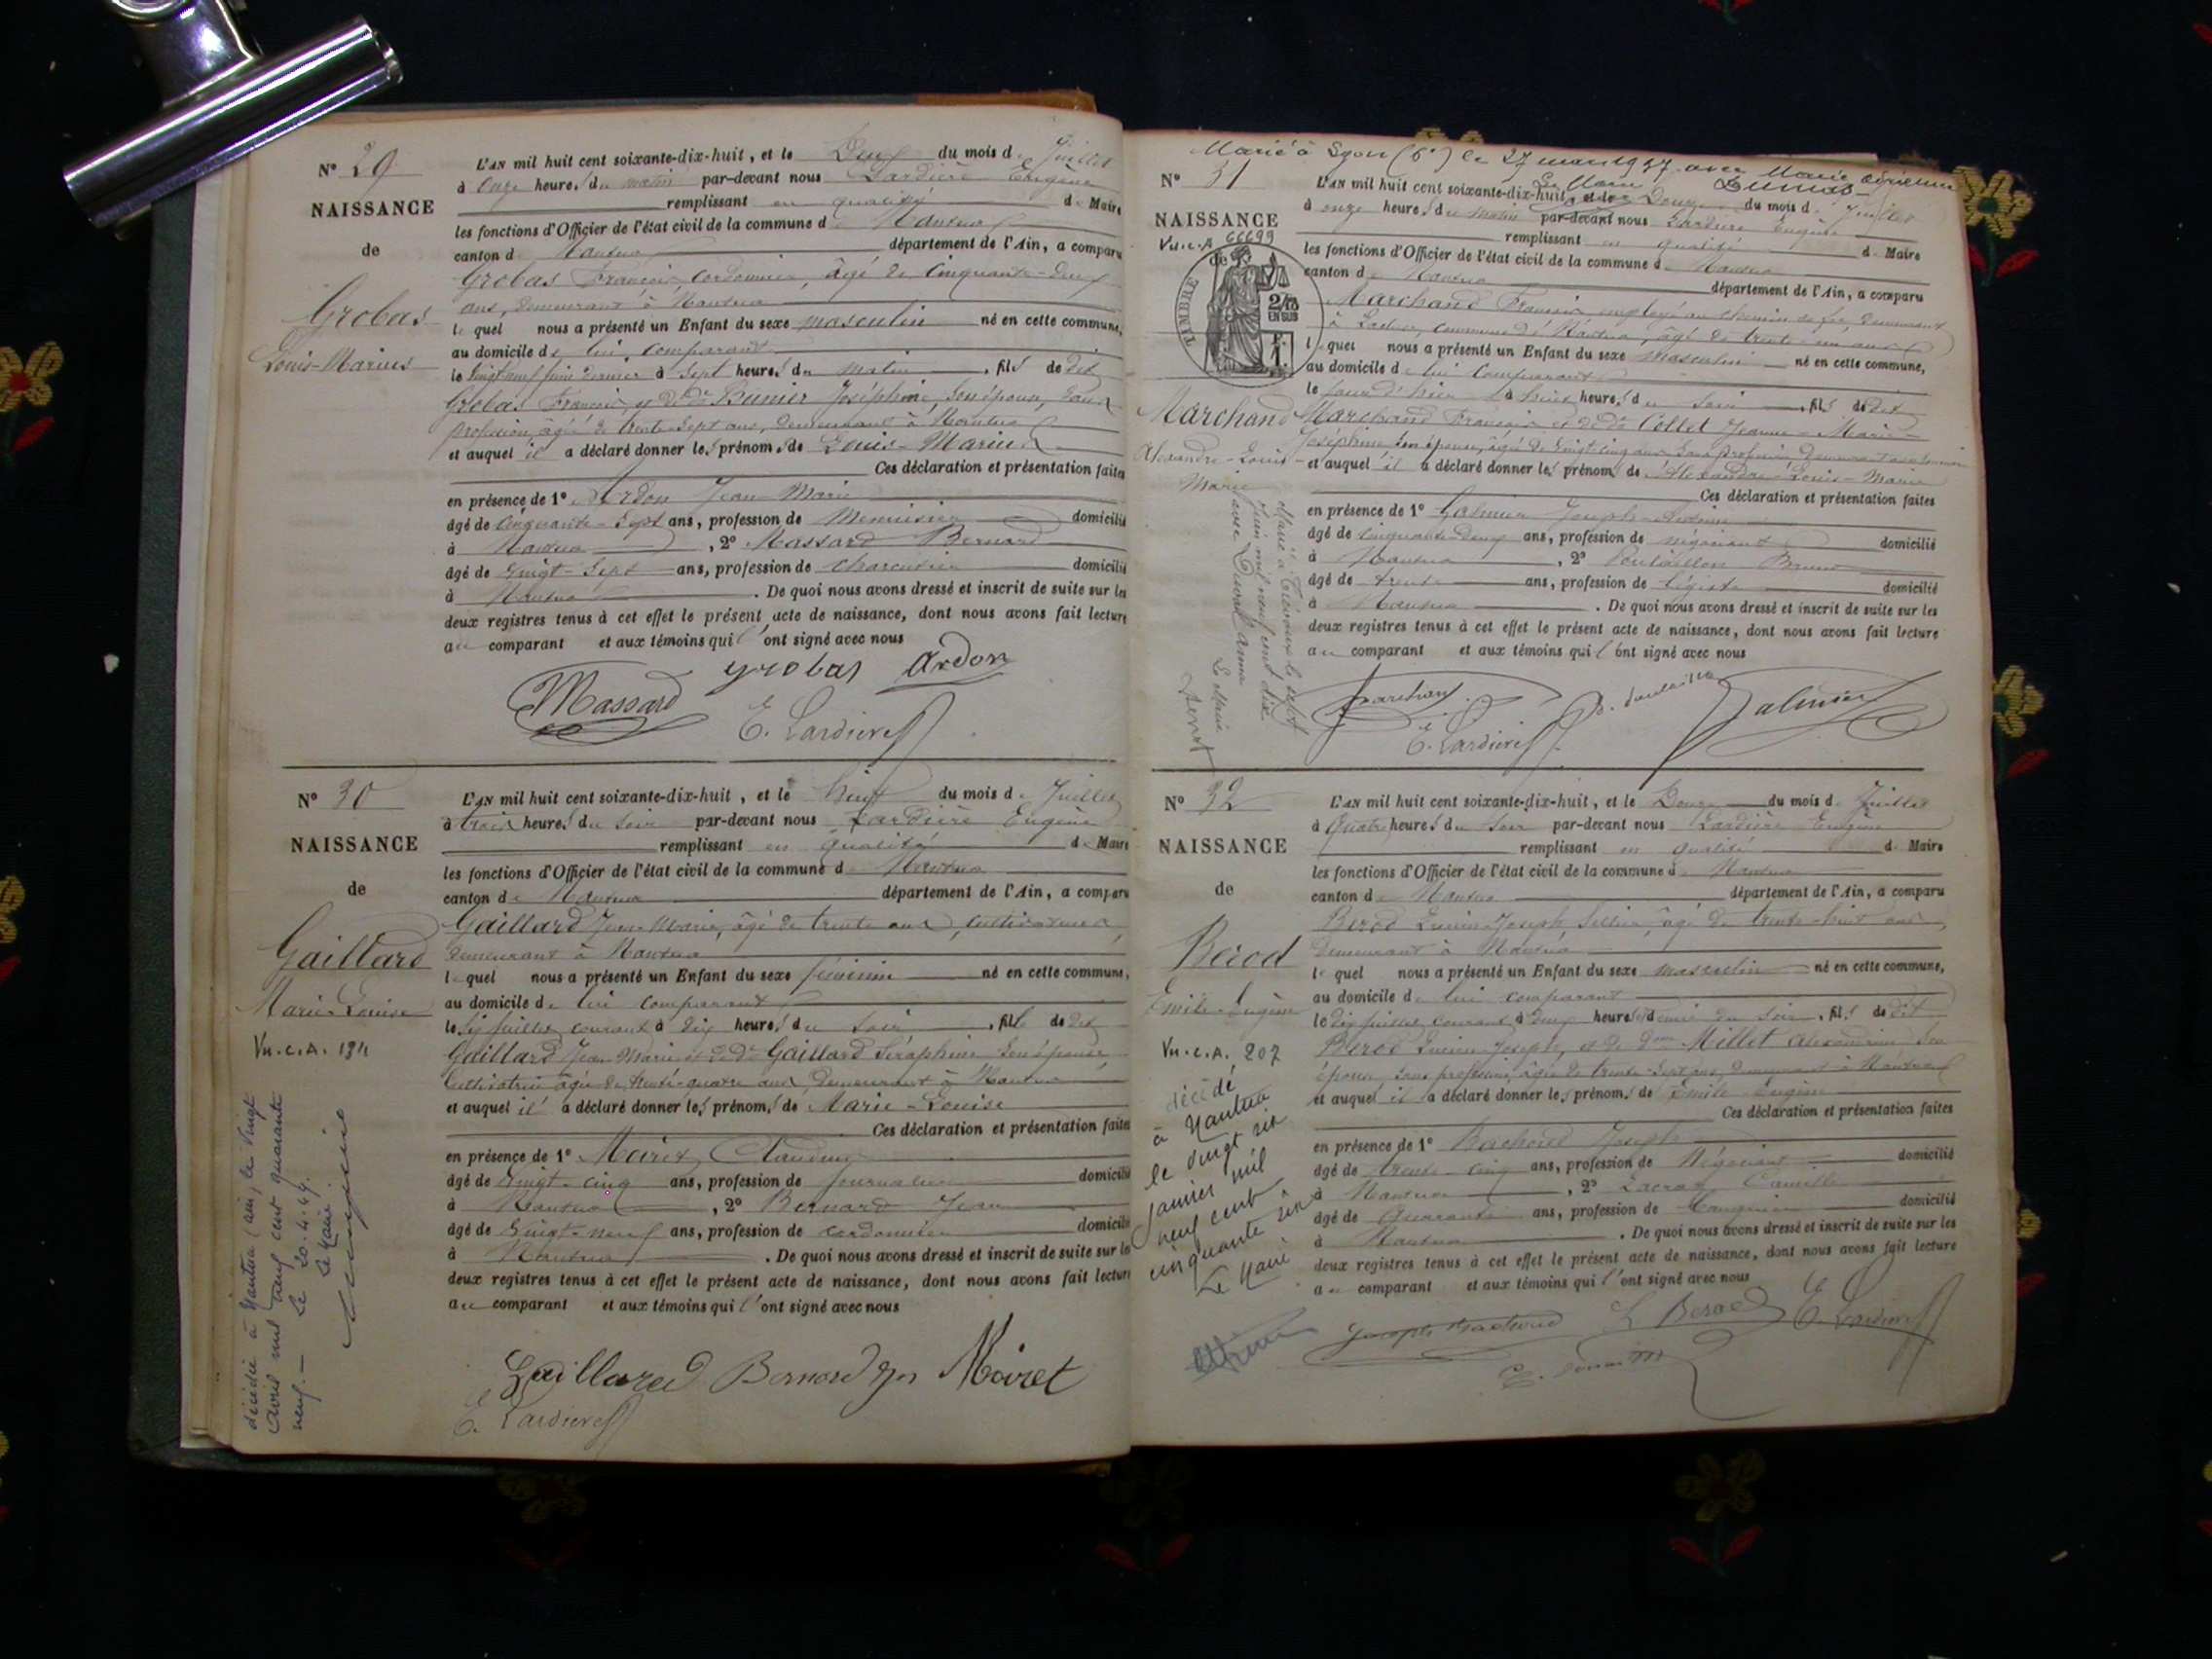 N° 29
NAISSANCE
de
Grobas
Louis-Marius
L'AN mil huit cent soixante-dix-huit, et le Deux du mois de Juillet
à Onze heures du matin par-devant nous Lardière Eugène
remplissant en qualité de Maire
les fonctions d'Officier de l'état civil de la commune de Nantua
canton de Nantua département de l'Ain, a comparu
Grobas François, cordonnier, âgé de Cinquante-Deux
ans, demeurant à Nantua
lequel nous a présenté un Enfant du sexe masculin né en cette commune,
au domicile de lui comparant
le Vingt neuf juin dernier à Sept heures du matin, fils de dit
Grobas François, et de de Joséphine, son épouse, sans
profession, âgée de trente-sept ans, demeurant à Nantua
et auquel il a déclaré donner les prénoms de Louis-Marius
Ces déclaration et présentation faites
en présence de 1° Ardon Jean Marie
âgé de Cinquante-Sept ans, profession de Menuisier domicilié
à Nantua, 2° Massard Bernard
âgé de Vingt-Sept ans, profession de Charcutier domicilié
à Nantua. De quoi nous avons dressé et inscrit de suite sur les
deux registres tenus à cet effet le présent acte de naissance, dont nous avons fait lecture
au comparant et aux témoins qui l'ont signé avec nous
grobas Ardon
Massard E. Lardiere
N° 30
NAISSANCE
de
Gaillard
Marie-Louise
Vu.c.A.
décédée à Nantua (ain) le vingt
avril mil neuf cent quarante
neuf.— Le 20.4.49.
Le Maire
L'AN mil huit cent soixante-dix-huit, et le Huit du mois de Juillet
à trois heures du soir par-devant nous Lardière Eugène
remplissant en qualité de Maire
les fonctions d'Officier de l'état civil de la commune de Nantua
canton de Nantua département de l'Ain, a comparu
Gaillard Jean Marie, âgé de trente ans, cultivateur,
demeurant à Nantua
lequel nous a présenté un Enfant du sexe féminin né en cette commune,
au domicile de lui comparant
le Six juillet courant à Dix heures du soir, fille de dit
Gaillard Jean Marie et de de Gaillard Séraphine son épouse,
Cultivatrice âgée de trente-quatre ans, demeurant à Nantua
et auquel il a déclaré donner les prénoms de Marie-Louise
Ces déclaration et présentation faites
en présence de 1° Moiret Claudius
âgé de Vingt-cinq ans, profession de Journalier domicilié
à Nantua, 2° Bernard Jean
âgé de Vingt-neuf ans, profession de cordonnier domicilié
à Nantua. De quoi nous avons dressé et inscrit de suite sur les
deux registres tenus à cet effet le présent acte de naissance, dont nous avons fait lecture
au comparant et aux témoins qui l'ont signé avec nous
Gaillard Bernard Moiret
E. Lardiere
Marié à Lyon (6e) le 27 mars 1937 avec Marie
Le Maire Dumas
N° 31
NAISSANCE
Vu.c.A 66699
de
TIMBRE
2/10 EN SUS
F. 1
Marchand
Alexandre-Louis-
Marie
Marié à Trévoux le sept
juin mil neuf cent dix
avec Duval anna
Le Maire
L'AN mil huit cent soixante-dix-huit, et le Douze du mois de Juillet
à onze heures du matin par-devant nous Lardière Eugène
remplissant en qualité de Maire
les fonctions d'Officier de l'état civil de la commune de Nantua
canton de Nantua département de l'Ain, a comparu
Marchand François employé au chemin de fer, demeurant
à commune de Nantua, âgé de trente-un ans
lequel nous a présenté un Enfant du sexe Masculin né en cette commune,
au domicile de lui Comparant
le jour d'hier à heures du soir, fils de dit
Marchand François et de de Collet Jeanne-Marie-
Joséphine son épouse, âgée de Vingt cinq ans sans profession
et auquel il a déclaré donner les prénoms de Alexandre-Louis-Marie
Ces déclaration et présentation faites
en présence de 1° Galmier Joseph
âgé de Cinquante-Deux ans, profession de négociant domicilié
à Nantua, 2° Bruno
âgé de trente ans, profession de légiste domicilié
à Nantua. De quoi nous avons dressé et inscrit de suite sur les
deux registres tenus à cet effet le présent acte de naissance, dont nous avons fait lecture
au comparant et aux témoins qui l'ont signé avec nous
Marchand Galmier
E. Lardiere
N° 32
NAISSANCE
de
Berod
Emile-Eugène
Vu.c.A. 207
décédé
à Nantua
le vingt six
janvier mil
neuf cent
cinquante six
Le Maire
L'AN mil huit cent soixante-dix-huit, et le Douze du mois de Juillet
à Quatre heures du soir par-devant nous Lardière Eugène
remplissant en qualité de Maire
les fonctions d'Officier de l'état civil de la commune de Nantua
canton de Nantua département de l'Ain, a comparu
Berod Lucien-Joseph, Sellier, âgé de trente-huit ans,
demeurant à Nantua
lequel nous a présenté un Enfant du sexe masculin né en cette commune,
au domicile de lui comparant
le Dix juillet courant à Deux heures et demie du soir, fils de dit
Berod Lucien Joseph, et de dme Millet Alexandrine son
épouse, sans profession, âgée de trente-sept ans, demeurant à Nantua
et auquel il a déclaré donner les prénoms de Emile-Eugène
Ces déclaration et présentation faites
en présence de 1° Bachoud Joseph
âgé de trente-cinq ans, profession de Négociant domicilié
à Nantua, 2° Camille
âgé de Quarante ans, profession de domicilié
à Nantua. De quoi nous avons dressé et inscrit de suite sur les
deux registres tenus à cet effet le présent acte de naissance, dont nous avons fait lecture
au comparant et aux témoins qui l'ont signé avec nous
Joseph Bachoud L. Berod E. Lardiere